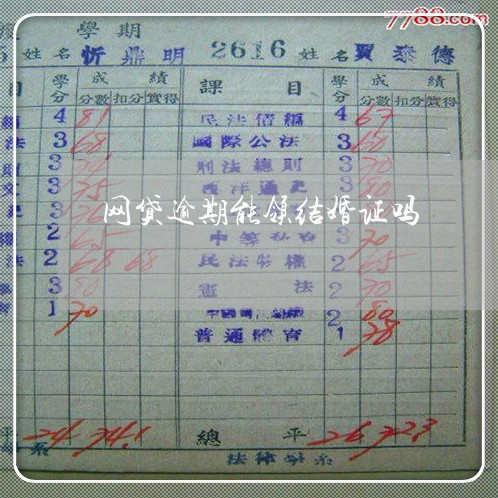 7788.com
學期
姓名 忻鼎明 2616 姓名 賈泰德
目 學分 成績 課目 學分 成績
分數 扣分 實得 分數 扣分 實得
4 81 民法債編 4 67
法 3 68 國際公法 3 60
3 刑法總則 3 70
3 75 西洋通史 3 80
3 3 70
2 65
法 2 68 68 民法物權 2 65
3 80 憲法 2 70
1 70 2 80
普通體育 1 78
網贷逾期能领结婚证吗
平 24 74.1 總平 26 72.3
系 法律學系